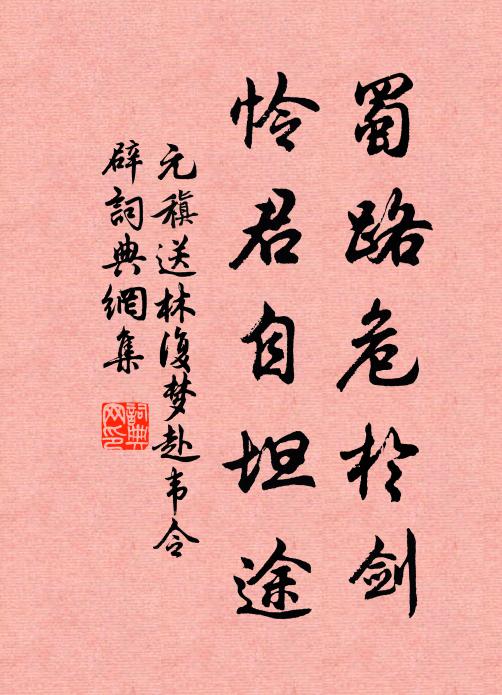 蜀路危於剑
怜君自坦途
元稹送林復梦赴韦令
辟詞典網集
詞典网印